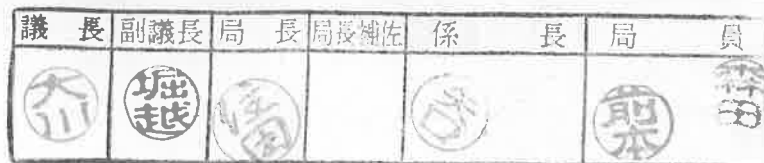 議長 副議長 局長 局長補佐 係長 局員
大川 堀越 前本